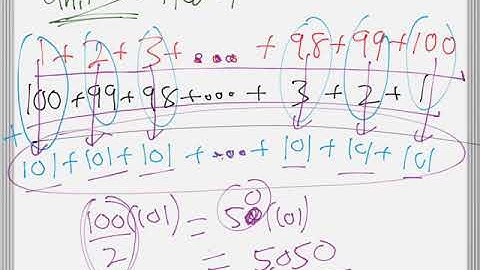 (1 + 2 + 3 + ... + 98 + 99 + 100
100 + 99 + 98 + ... + 3 + 2 + 1
+
101 + 101 + 101 + ... + 101 + 101 + 101
100/2 (101) = 50 (101)
= 5,050